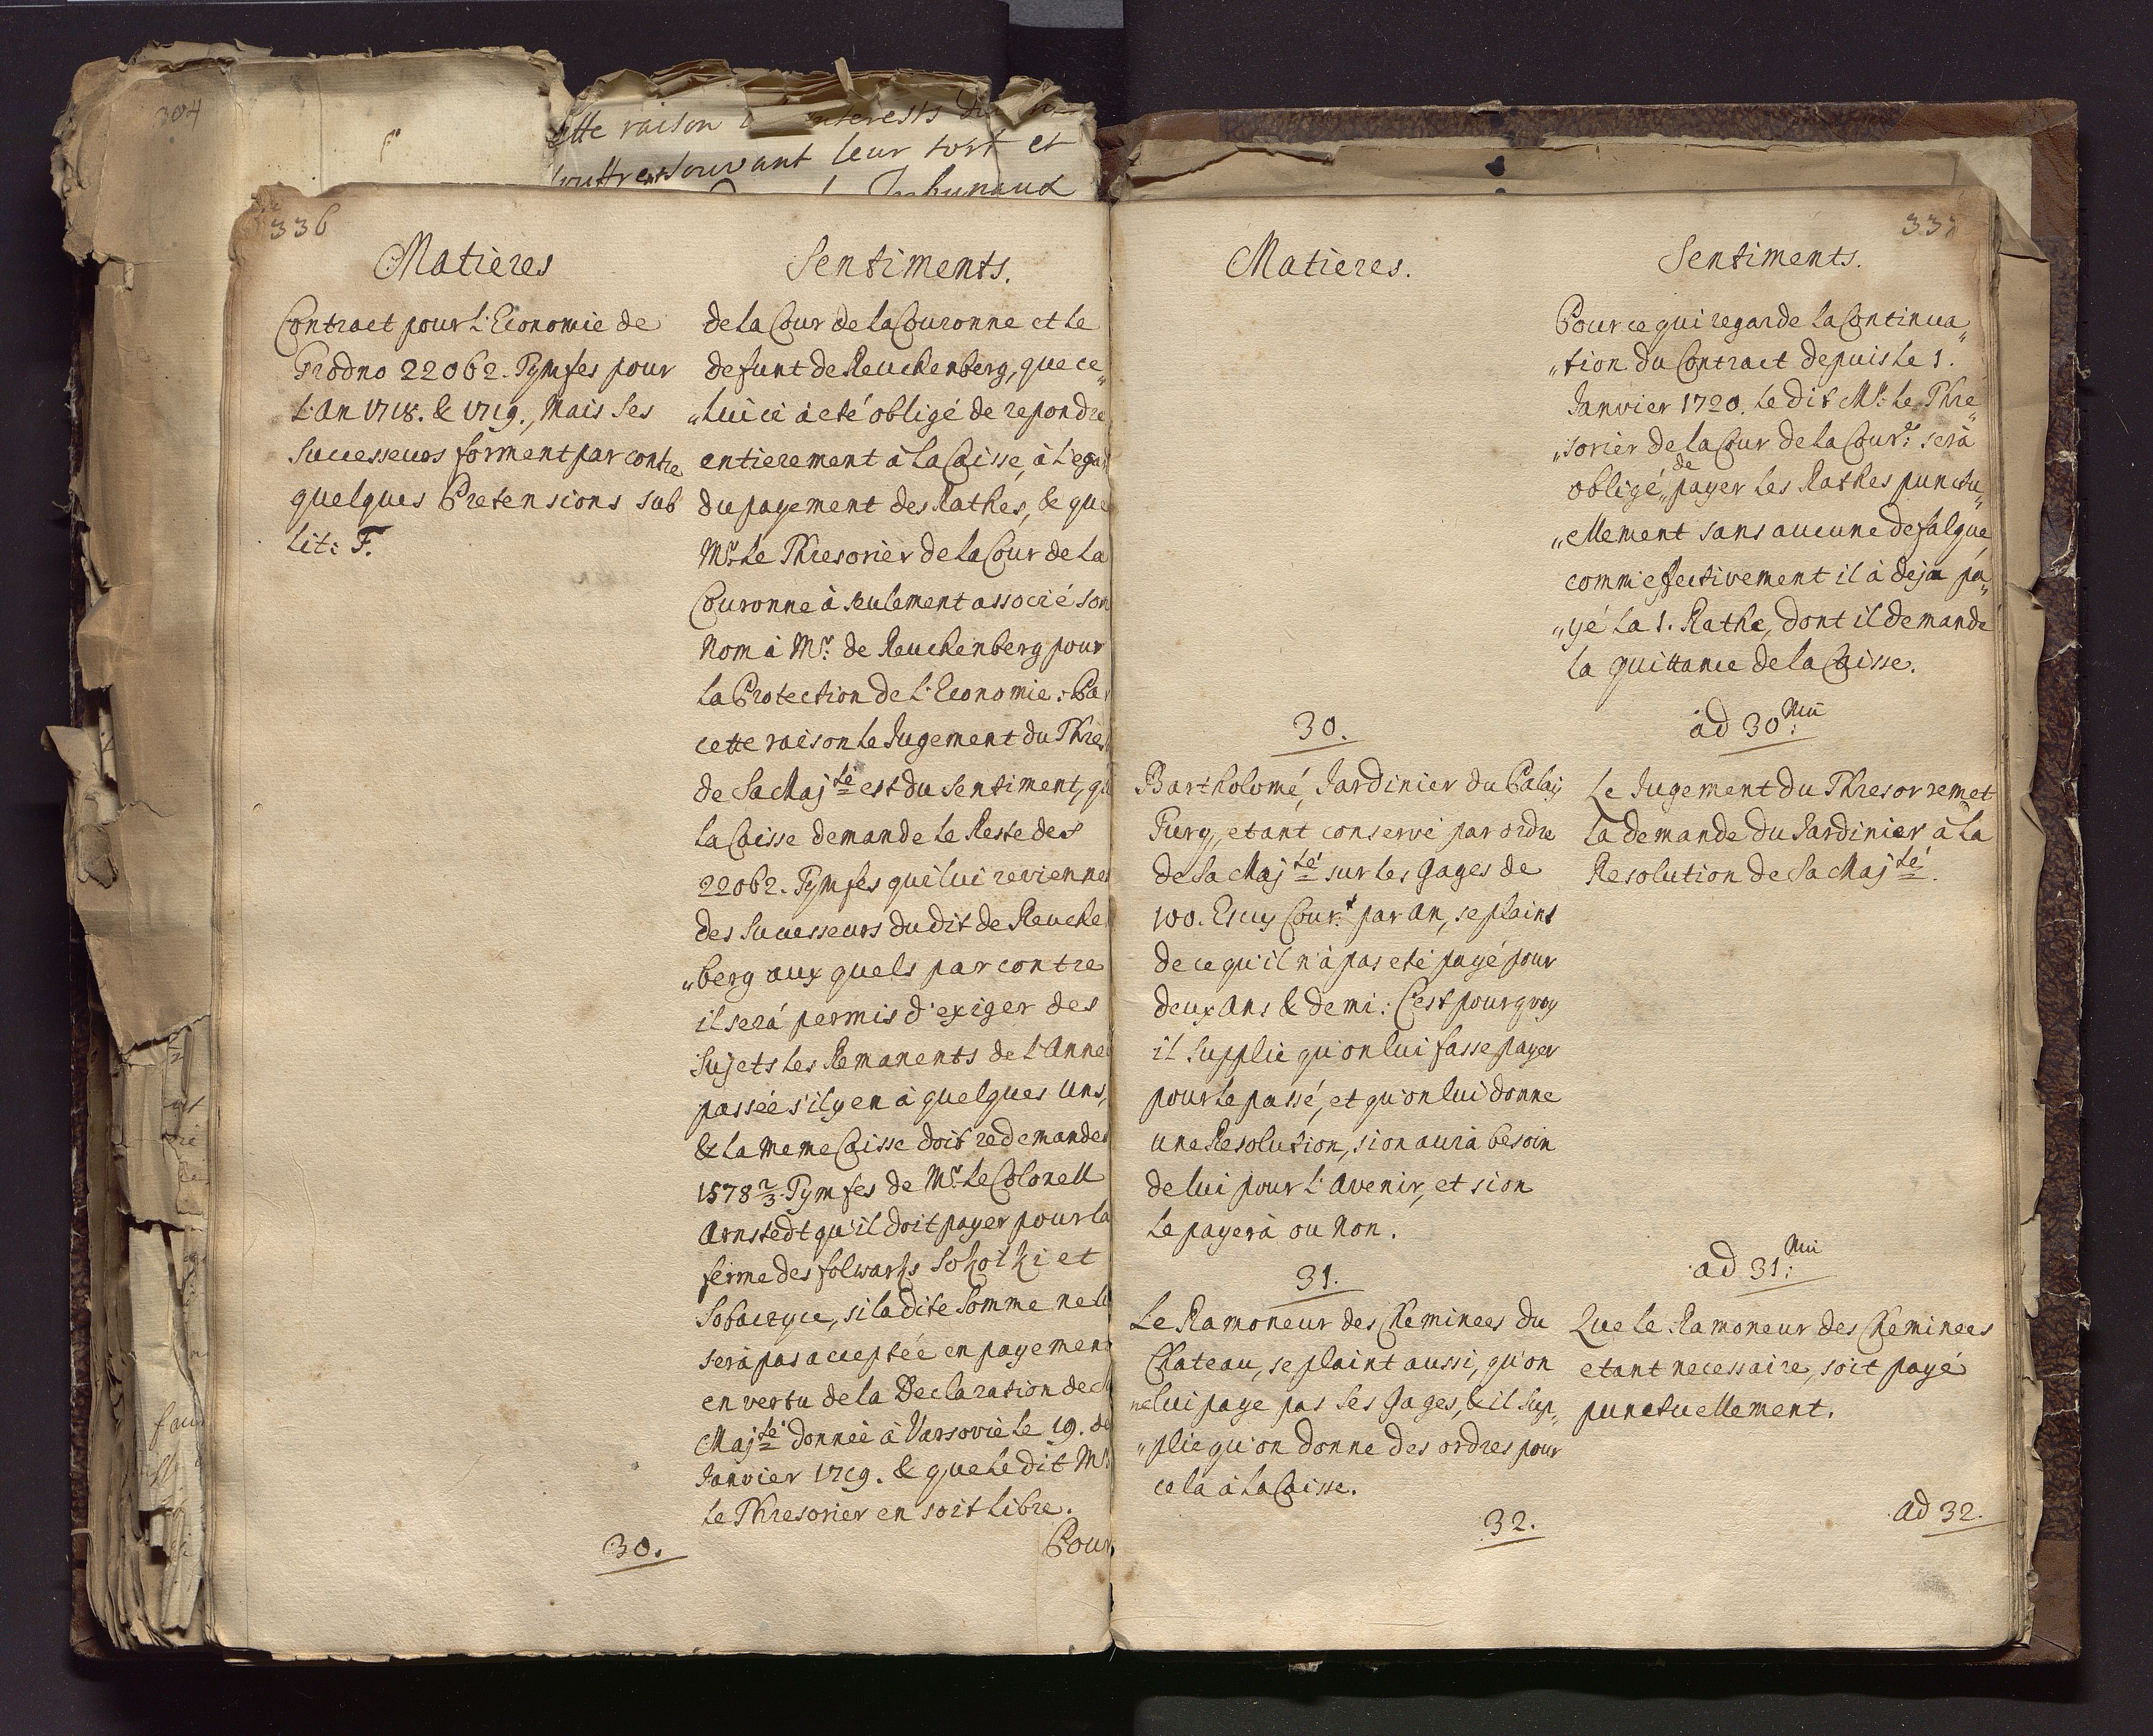 304
cette raison interests du
souffrent souvant leur tort et
Tribunaux
336
Matieres
Contract pour l'Economie de
Grodno 22062. Tymfes pour
l'An 1718. & 1719., Mais ses
Successeurs forment par contre
quelques Pretensions sub
Lit: F.
30.
Sentiments.
de la Cour de la Couronne et le
defunt de Reuckenberg, que ce„
„lui ci à eté obligé de repondre
entierement à la Caisse, à l'egar
du payement des Rathes, & que
Mr. le Thresorier de la Cour de la
Couronne à seulement associé son
Nom à Mr. de Reuckenberg pour
la Protection de l'Economie: Par
cette raison le Jugement du Thres
de Sa Majté est du sentiment, qu
la Caisse demande le Reste des
22062. Tymfes qui lui reviennen
des Successeurs du dit de Reucke
„berg aux quels par contre
il serà permis d'exiger des
Sujets les Remanents de l'Année
passée s'il y en à quelques Uns,
& la meme Caisse doit redemander
1578 2/3. Tymfes de Mr. le Colonell
Arnstedt qu'il doit payer pour la
ferme des folwarks Sokolki et
Sobaczyce, si la dite Somme ne lu
serà pas acceptée en payement
en vertu de la Declaration de
Majté donnée à Varsovie le 19. de
Janvier 1719. & que le dit Mr
le Thresorier en soit libre.
Pour
Matieres.
30.
Bartholomé, Jardinier du Palais
Turg, etant conservé par ordre
de Sa Majté sur les Gages de
100. Escus Cour.t par An, se plaint
de ce qu'il n'à pas eté payé pour
deux Ans & demi: C'est pourquoy
il Supplie qu'on lui fasse payer
pour le passé, et qu'on lui donne
une Resolution, si on aurà besoin
de lui pour l'Avenir, et si on
le payerà ou Non.
31.
Le Ramoneur des Cheminees du
Chateau, se plaint aussi, qu'on
ne lui paye pas ses Gages, & il Sup„
„plie qu'on donne des ordres pour
cela à la Caisse.
32.
Sentiments.
Pour ce qui regarde la Continua„
„tion du Contract depuis le 1.
Janvier 1720. le dit Mr. le Thre„
„sorier de la Cour de la Cour: serà
obligé de payer les Rathes punctu„
„ellement sans aucune defalque
comm'effectivement il à deja pa„
„yé la 1. Rathe, dont il demande
la quittance de la Caisse.
ad 30:Num
Le Jugement du Thresor remet
la demande du Jardinier à la
Resolution de Sa Majté.
ad 31:Num
Que le Ramoneur des Cheminees
etant necessaire, soit payé
punctuellement.
ad 32.